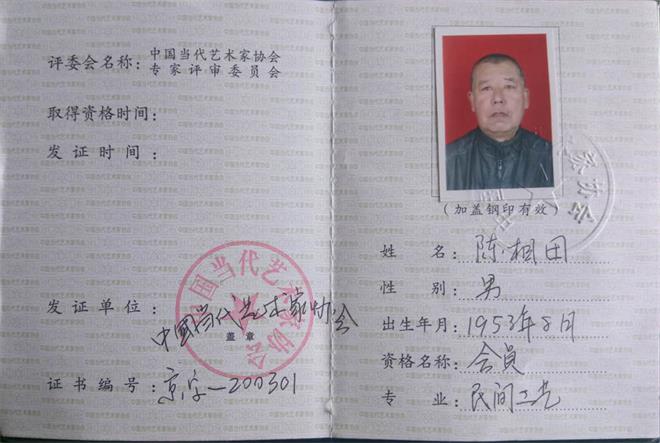 评委会名称:中国当代艺术家协会
专家评审委员会
取得资格时间:
发证时间:
发证单位:中國当代艺术家协会
盖章
中国当代艺术家协会
证书编号:京字—200301
(加盖钢印有效)
姓名:陈相田
性别:男
出生年月:1953年8月
资格名称:会员
专业:民间工艺